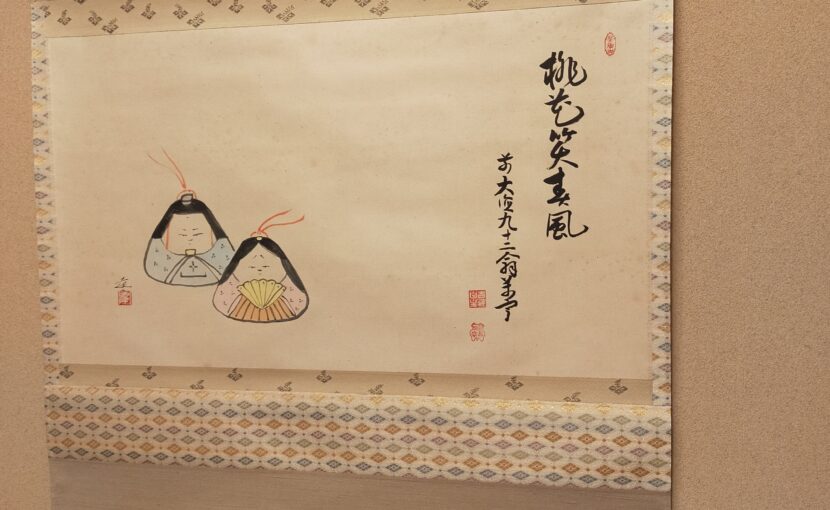 桃花笑春風
前大徳九十二翁